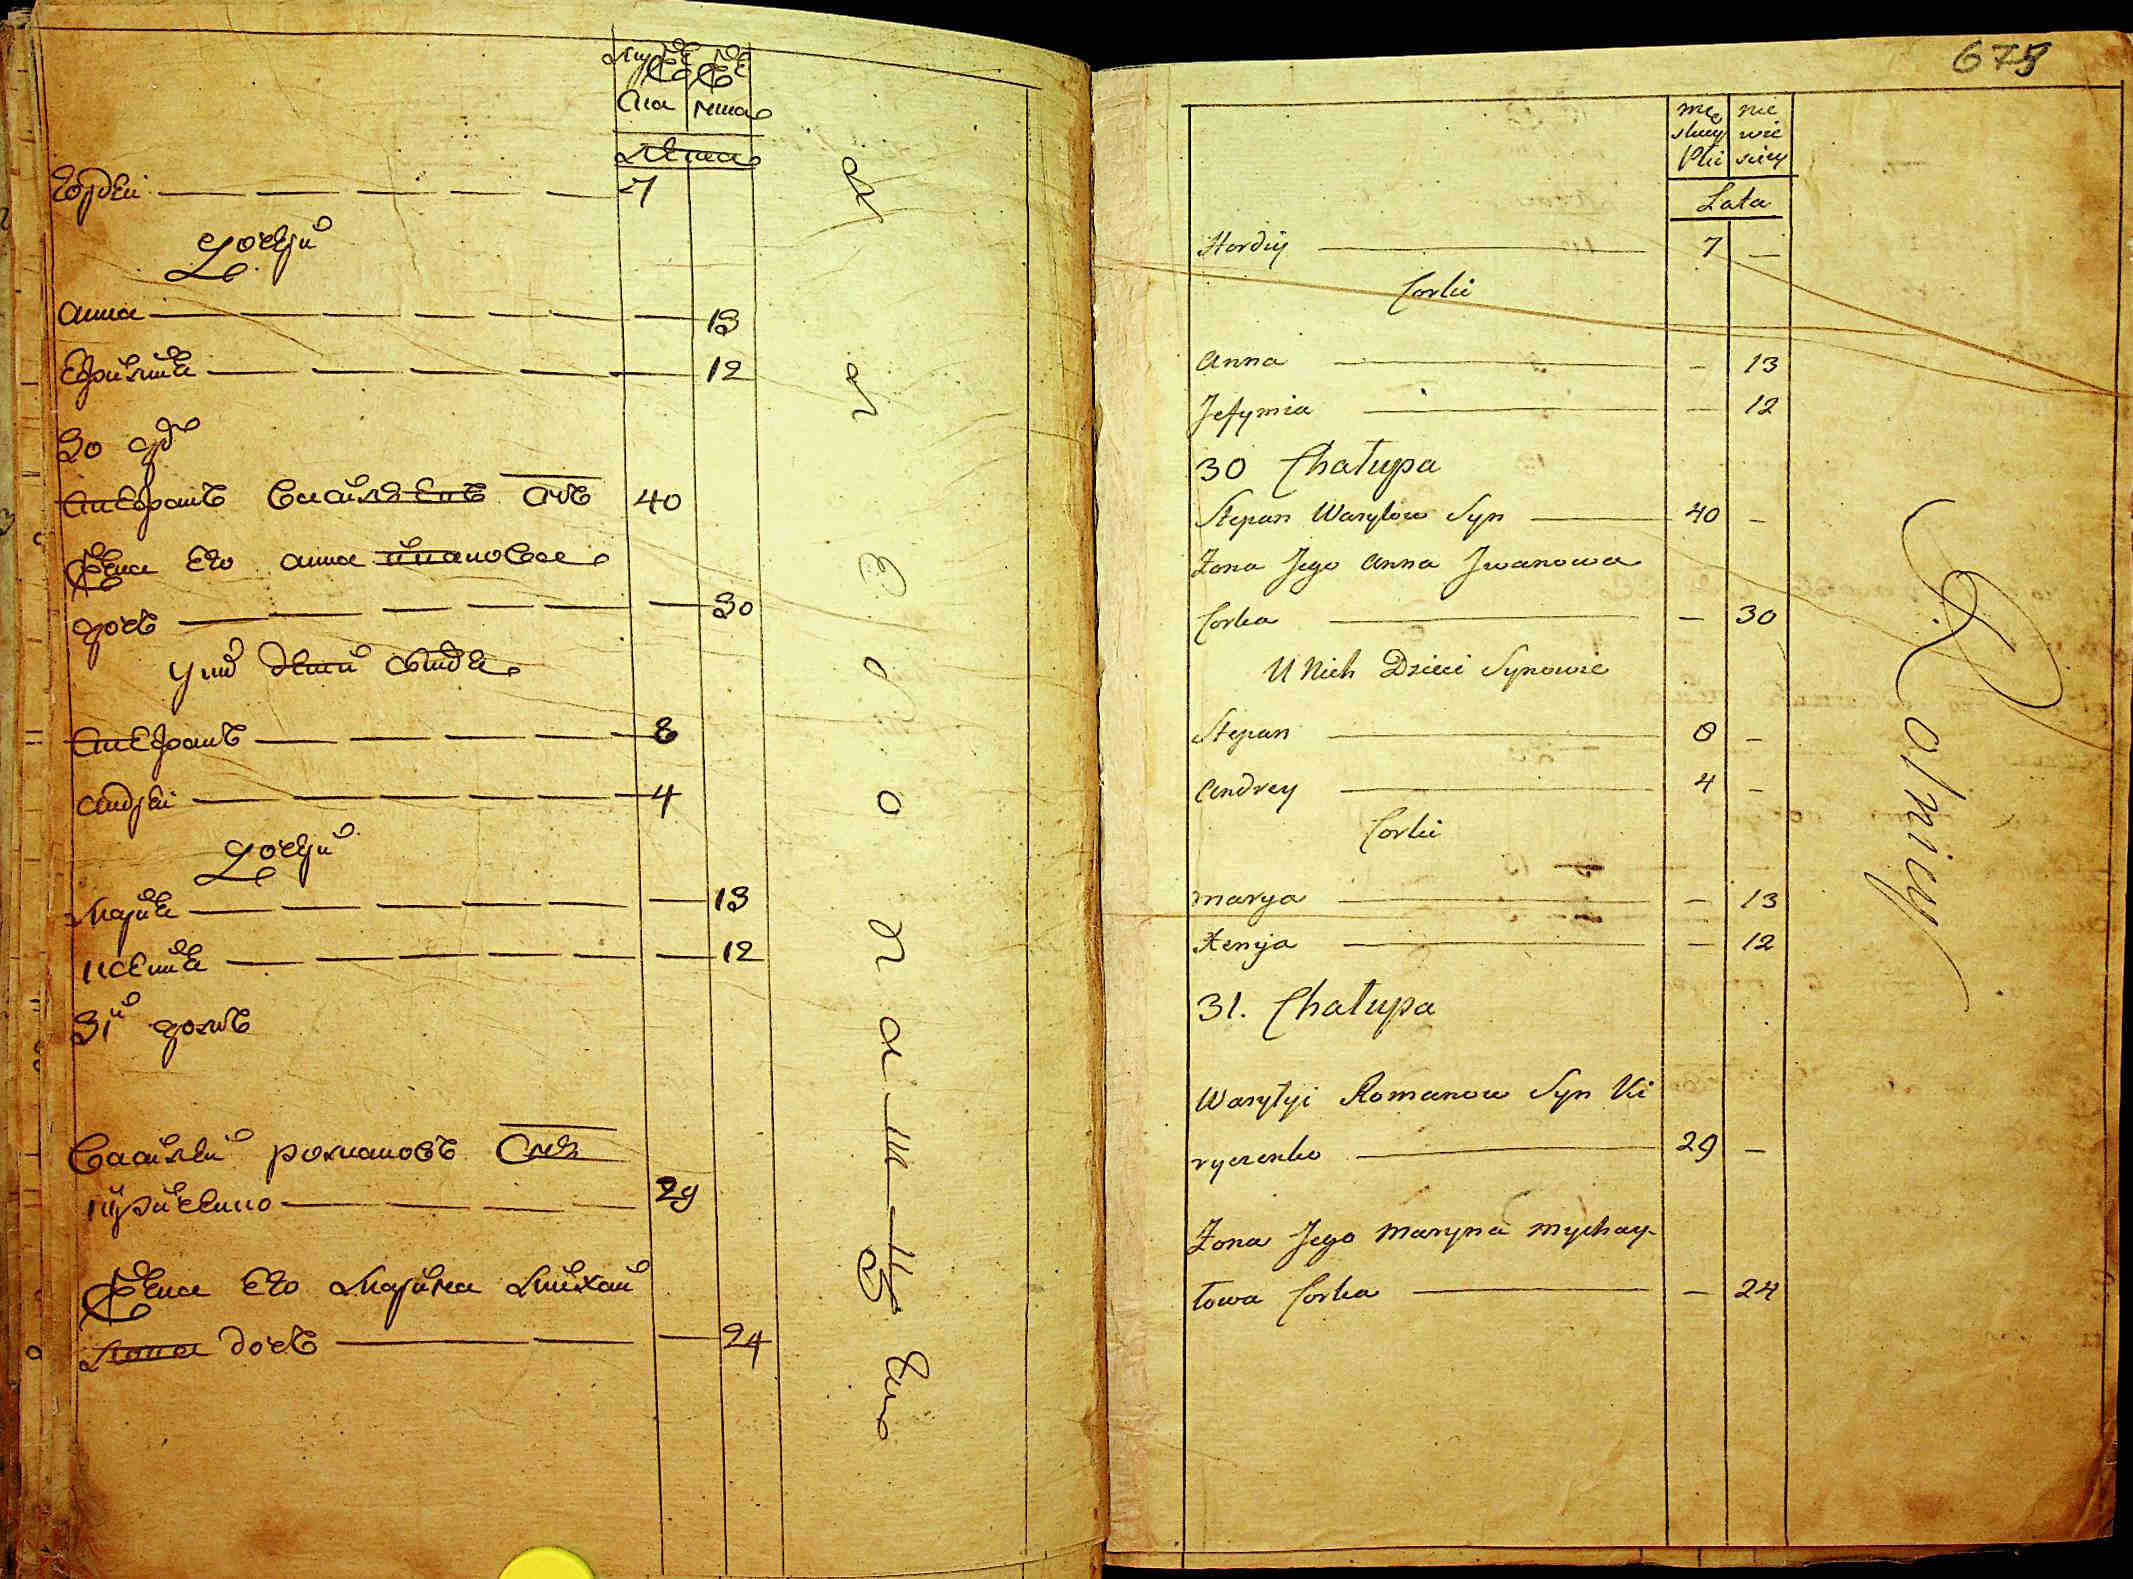 Гордеи — 7
Дочери
Анна — 13
Ефимиѧ — 12
30 дво
Степанъ Василевъ снъ 40
Жена его Анна Иванова
дочъ — 30
У них дети сыновѧ
Степанъ — 8
Андреи — 4
Дочери
Мариѧ — 13
Ксениѧ — 12
31й домъ
Василеи Романовъ Снъ
Кириченко — 29
Жена его Марина Михаи
лова дочъ — 24
675
Lata
Hordiy — 7 —
Corki
Anna — — 13
Jefymia — — 12
30 Chałupa
Stepan Wasylow Syn — 40 —
Żona Jego Anna Jwanowa
Corka — — 30
U Nich Dzieci Synowie
Stepan — 8 —
Andrey — 4 —
Corki
Marya — — 13
Xenija — — 12
31. Chałupa
Wasylyi Romanow Syn Ki
ryczenko — 29 —
Żona Jego Maryna Mychay-
łowa Corka — — 24